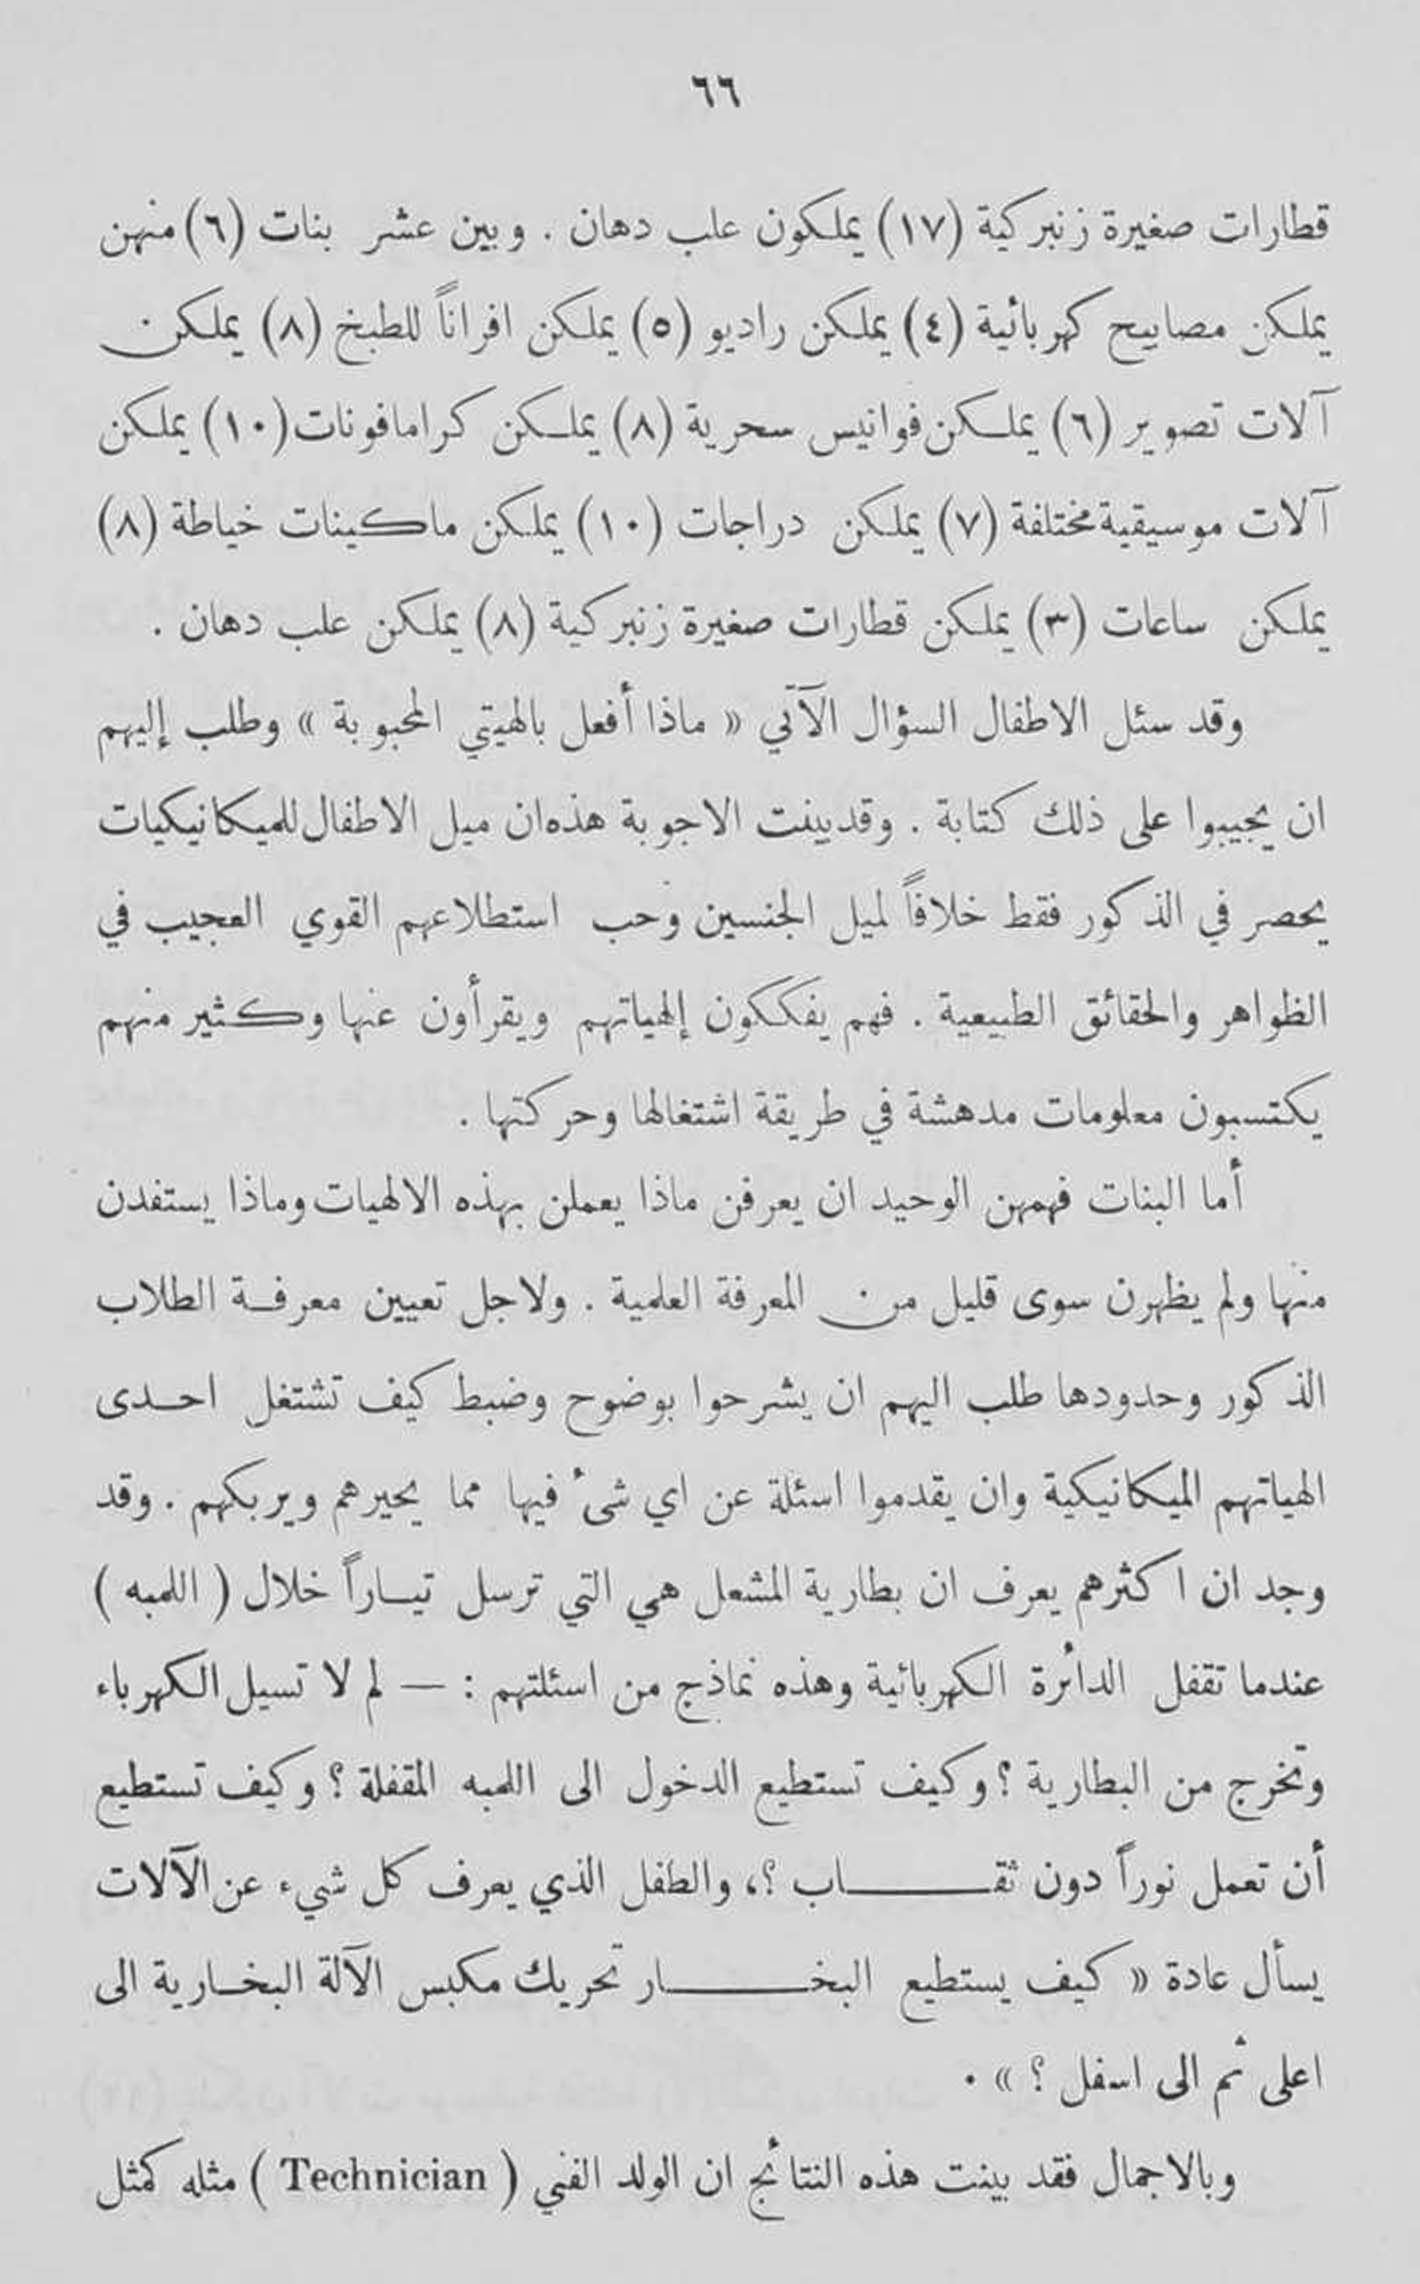 ٦٦
قطارات صغيرة زنبركية (١٧) يملكون علب دهان . وبين عشر بنات (٦) منهن
يملكن مصابيح كهربائية (٤) يملكن راديو (٥) يملكن افراناً للطبخ (٨) يملكن
آلات تصوير (٦) يملكن فوانيس سحرية (٨) يملكن كرامافونات (١٠) يملكن
آلات موسيقية مختلفة (٧) يملكن دراجات (١٠) يملكن ماكينات خياطة (٨)
يملكن ساعات (٣) يملكن قطارات صغيرة زنبركية (٨) يملكن علب دهان .
وقد سئل الاطفال السؤال الآتي « ماذا أفعل بالهيتي المحبوبة » وطلب إليهم
ان يجيبوا على ذلك كتابة . وقد بينت الاجوبة هذه ان ميل الاطفال للميكانيكيات
يحصر في الذكور فقط خلافاً لميل الجنسين وحب استطلاعهم القوي العجيب في
الظواهر والحقائق الطبيعية . فهم يفككون إلهياتهم ويقرأون عنها وكثير منهم
يكتسبون معلومات مدهشة في طريقة اشتغالها وحركتها .
أما البنات فهمهن الوحيد ان يعرفن ماذا يعملن بهذه الالهيات وماذا يستفدن
منها ولم يظهرن سوى قليل من المعرفة العلمية . ولاجل تعيين معرفة الطلاب
الذكور وحدودها طلب اليهم ان يشرحوا بوضوح وضبط كيف تشتغل احدى
الهياتهم الميكانيكية وان يقدموا اسئلة عن اي شئ فيها مما يحيرهم ويربكهم . وقد
وجد ان اكثرهم يعرف ان بطارية المشعل هي التي ترسل تياراً خلال ( اللمبه )
عندما تقفل الدائرة الكهربائية وهذه نماذج من اسئلتهم : — لم لا تسيل الكهرباء
وتخرج من البطارية ؟ وكيف تستطيع الدخول الى اللمبه المقفلة ؟ وكيف تستطيع
أن تعمل نوراً دون ثقاب ؟، والطفل الذي يعرف كل شيء عن الآلات
يسأل عادة « كيف يستطيع البخار تحريك مكبس الآلة البخارية الى
اعلى ثم الى اسفل ؟ » .
وبالاجمال فقد بينت هذه النتائج ان الولد الفني ( Technician ) مثله كمثل